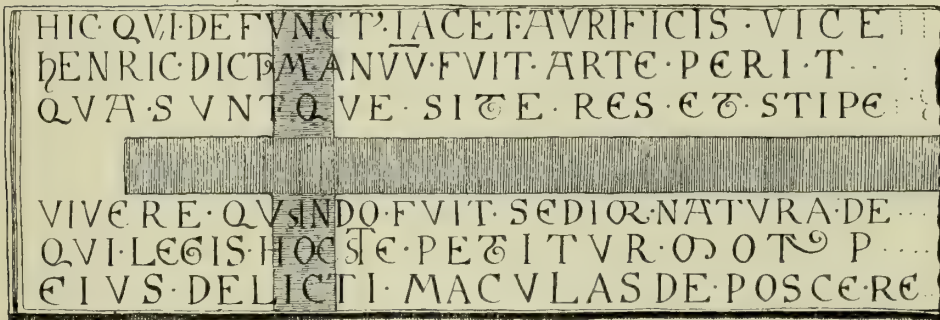 HIC·QVI·DEFVNCT'·IACET·AVRIFICIS·VICE
HENRIC·DICT'MANVV·FVIT·ARTE·PERI·T
QVA·SVNT·QVE·SITE·RES·ET·STIPE
VIVERE·QVANDO·FVIT·SEDIOR·NATVRA·DE
QVI·LEGIS·HOC STE·PETITVR·MOT P
EIVS·DELICTI·MACVLAS DE·POSCE·RE